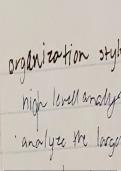 organization styl
high levell analys
analyze the large